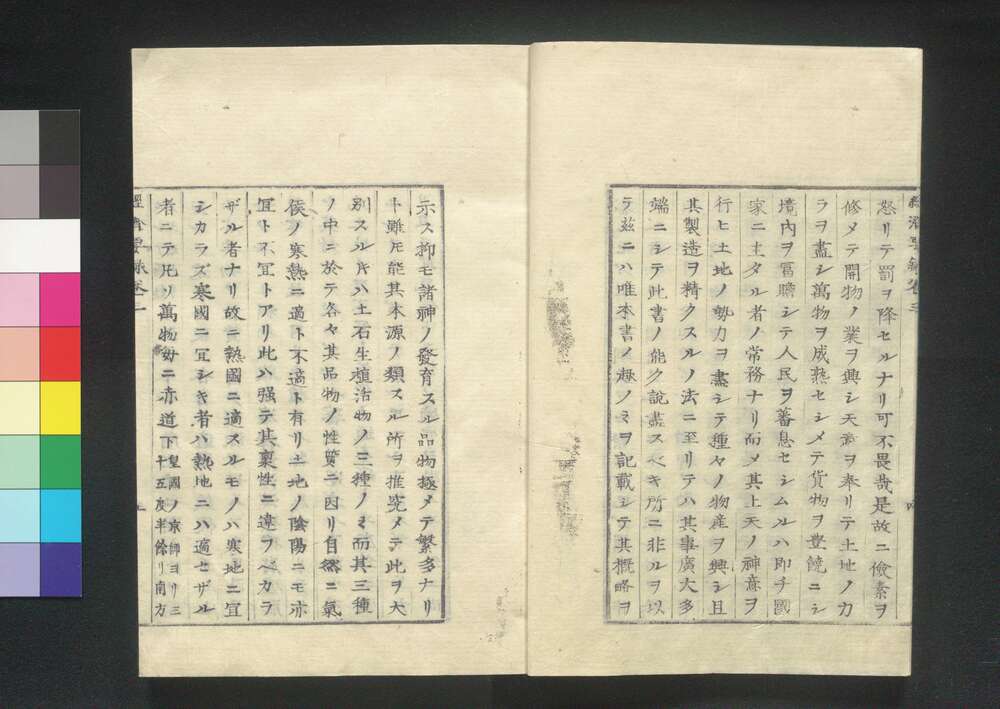 怒リテ罰ヲ降セルナリ可不畏哉是故ニ儉素ヲ
修メテ開物ノ業ヲ興シ天意ヲ奉リテ土地ノ力
ラヲ盡シ萬物ヲ成熟セシメテ貨物ヲ豊饒ニシ
境内ヲ富贍シテ人民ヲ蕃息セシムルハ即チ國
家ニ主タル者ノ常務ナリ而メ其上天ノ神意ヲ
行ヒ土地ノ勢力ヲ盡シテ種々ノ物産ヲ興シ且
其製造ヲ精クスルノ法ニ至リテハ其事廣大多
端ニシテ此書ノ能ク説盡スベキ所ニ非ルヲ以
テ茲ニハ唯本書ノ趣ノミヲ記載シテ其概略ヲ
示ス抑モ諸神ノ發育スル品物極メテ繁多ナリ
ト雖𪜈能其本源ノ類スル所ヲ推究メテ此ヲ大
別スル𪜈ハ土石生植活物ノ三種ノミ而其三種
ノ中ニ於テ各々其品物ノ性質ニ因リ自然ニ氣
候ノ寒熱ニ適ト不適ト有リ土地ノ陰陽ニモ亦
宜ト不宜トアリ此ハ强テ其禀性ニ違フベカラ
ザル者ナリ故ニ熱國ニ適スルモノハ寒地ニ宜
シカラズ寒國ニ宜シキ者ハ熱地ニハ適セザル
者ニテ凡ソ萬物毎ニ赤道下皇國ノ京師ヨリ三十五度半餘リ南方
經濟要録卷一